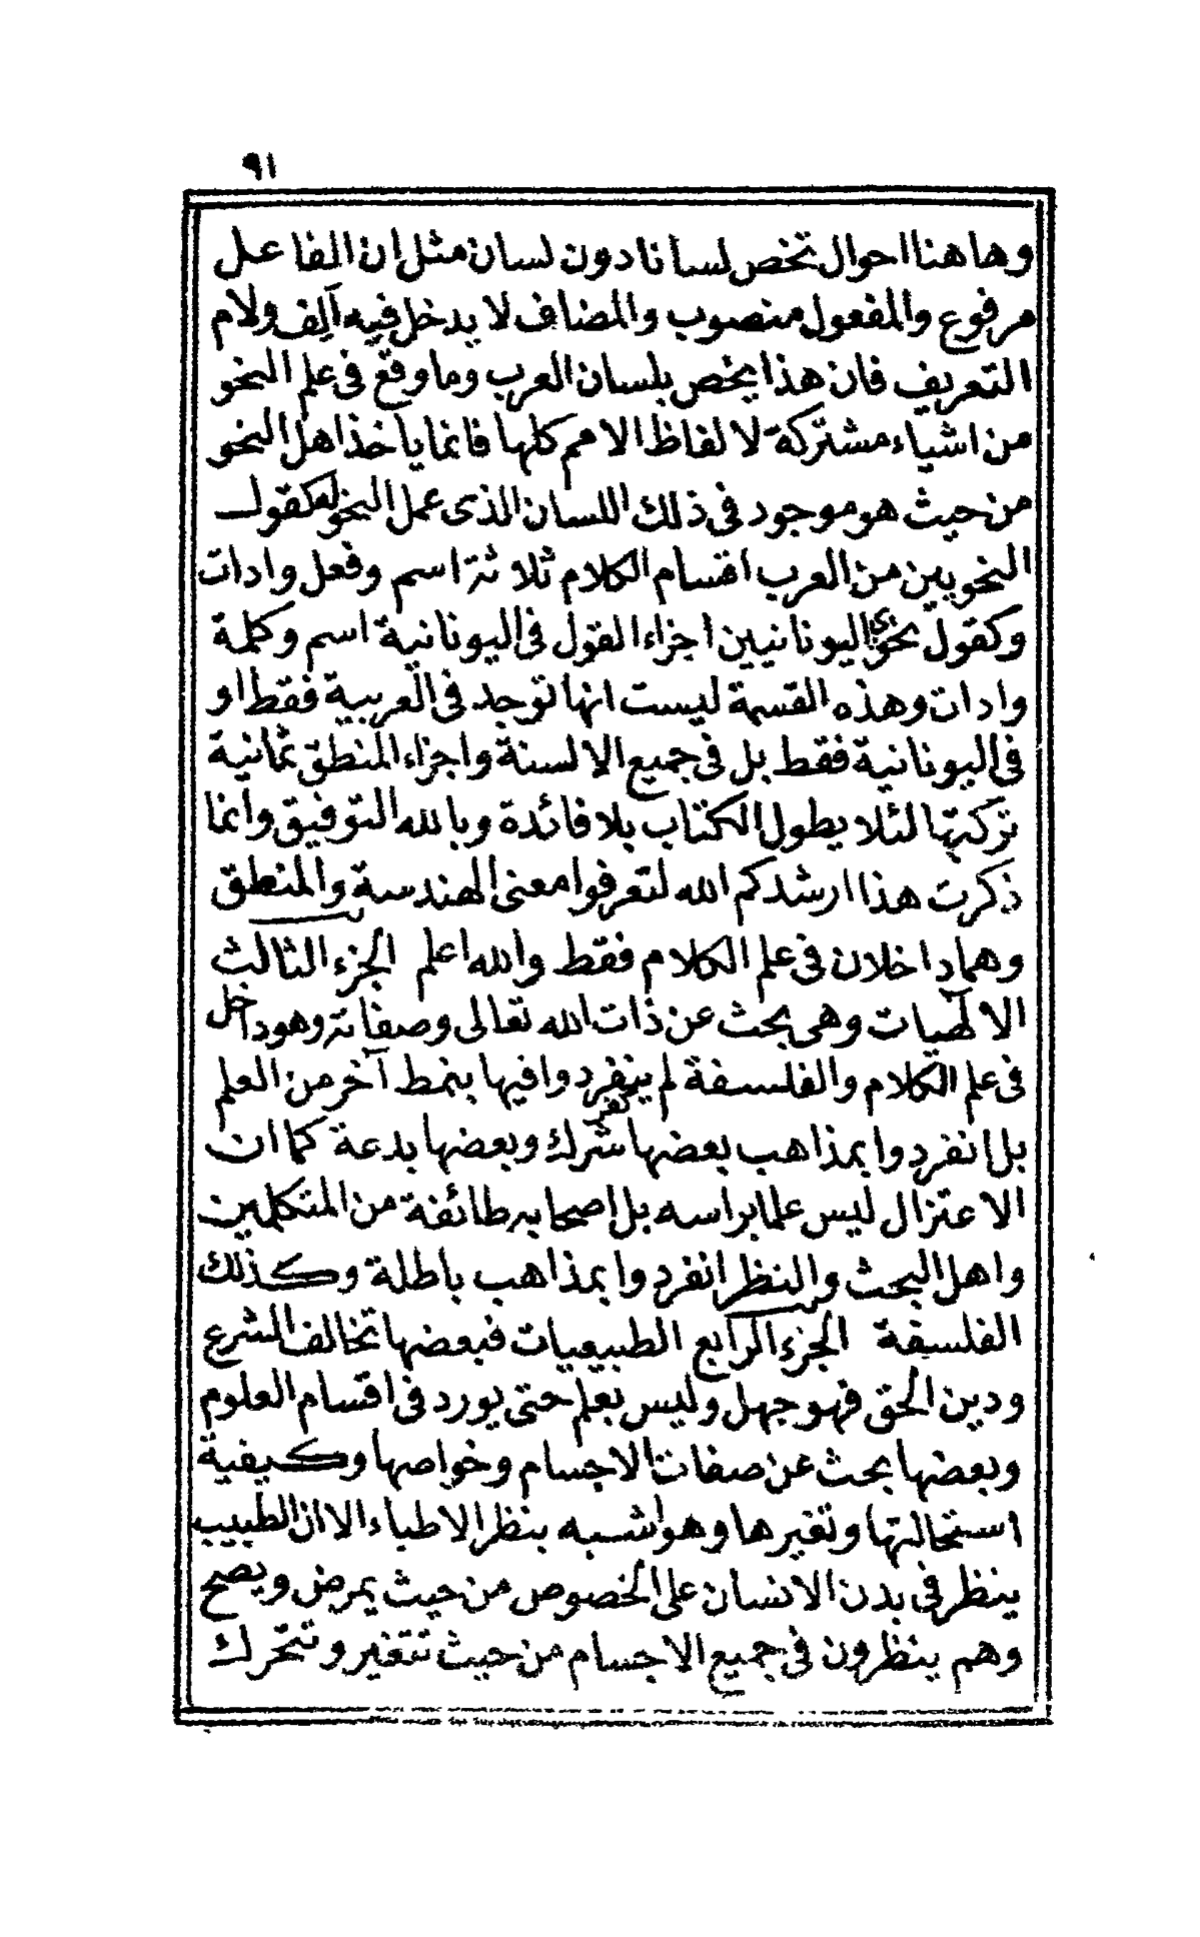 ٩١
وها هنا احوال تخص لسانا دون لسان مثل ان الفاعل
مرفوع والمفعول منصوب والمضاف لا يدخل فيه الف ولام
التعريف فان هذا يخص بلسان العرب وما وقع فى علم النحو
من اشياء مشتركة لالفاظ الامم كلها فانما ياخذ اهل النحو
من حيث هو موجود فى ذلك اللسان الذى عمل النحو له كقول
النحويين من العرب اقسام الكلام ثلاثة اسم وفعل وادات
وكقول نحوى اليونانيين اجزاء القول فى اليونانية اسم وكلمة
وادات وهذه القسمة ليست انها توجد فى العربية فقط او
فى اليونانية فقط بل فى جميع الالسنة واجزاء المنطق ثمانية
تركتها لئلا يطول الكتاب بلا فائدة وبالله التوفيق وانما
ذكرت هذا ارشدكم الله لتعرفوا معنى الهندسة والمنطق
وهما داخلان فى علم الكلام فقط والله اعلم الجزء الثالث
الالهيات وهى بحث عن ذات الله تعالى وصفاته وهو داخل
فى علم الكلام والفلسفة لم ينفردوا فيها بنمط آخر من العلم
بل انفردوا بمذاهب بعضها كفر شرك وبعضها بدعة كما ان
الاعتزال ليس علما براسه بل اصحابه طائفة من المتكلمين
واهل البحث والنظر انفردوا بمذاهب باطلة وكذلك
الفلسفة الجزء الرابع الطبيعيات فبعضها تخالف الشرع
ودين الحق فهو جهل وليس بعلم حتى يورد فى اقسام العلوم
وبعضها بحث عن صفات الاجسام وخواصها وكيفية
استحالتها وتغيرها وهو اشبه بنظر الاطباء الا ان الطبيب
ينظر فى بدن الانسان على الخصوص من حيث يمرض ويصح
وهم ينظرون فى جميع الاجسام من حيث تتغير وتتحرك